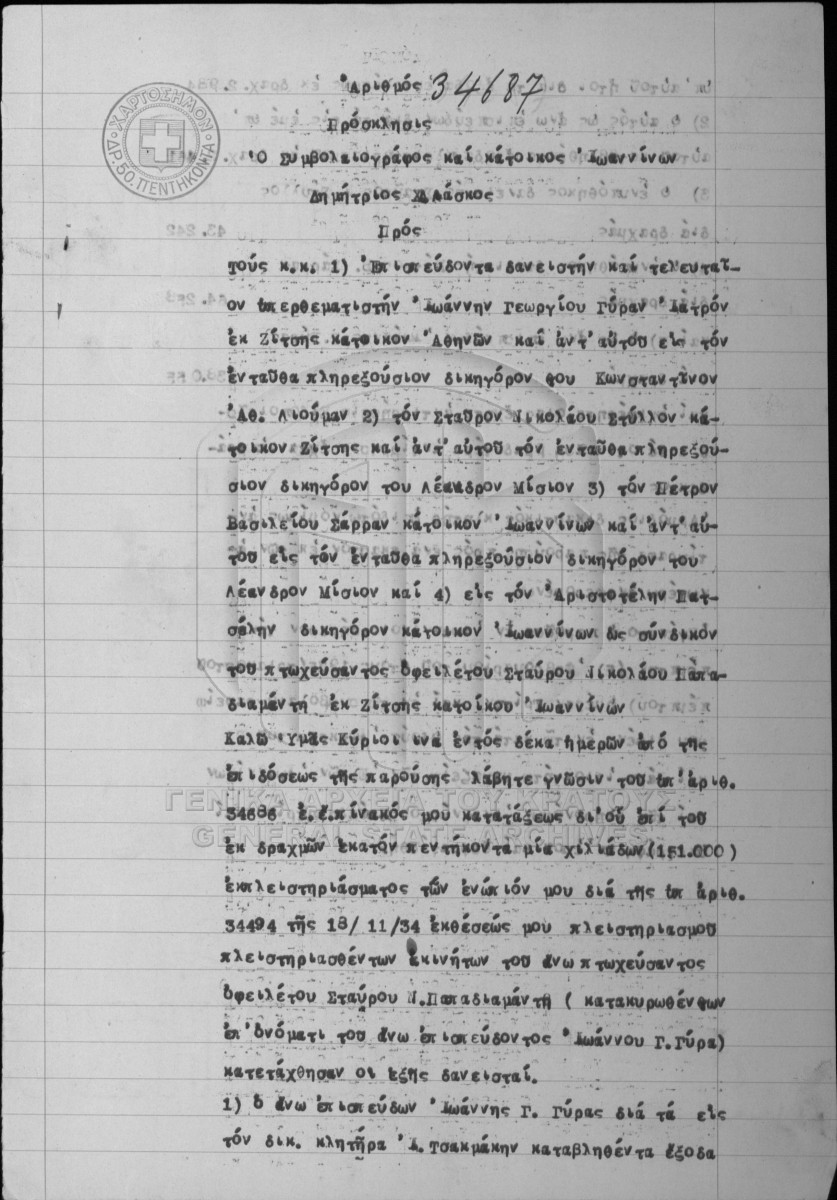 Ἀριθμός 34687
Πρόσκλησις
Ὁ Συμβολαιογράφος καί κάτοικος Ἰωαννίνων
Δημήτριος Χ Λάσκος
Πρός
Τούς κ.κ. 1) Ἐπισπεύδοντα δανειστήν καί τελευταῖ-
ον ὑπερθεματιστήν Ἰωάννην Γεωργίου Γύραν Ἰατρόν
ἐκ Ζίτσης κάτοικον Ἀθηνῶν καί ἀντ' αὐτοῦ εἰς τόν
ἐνταῦθα πληρεξούσιον δικηγόρον του Κωνσταντῖνον
Ἀθ. Λιούμαν 2) τόν Σταῦρον Νικολάου Στύλλον κά-
τοικον Ζίτσης καί ἀντ' αὐτοῦ τόν ἐνταῦθα πληρεξού-
σιον δικηγόρον του Λέανδρον Μίσιον 3) τόν Πέτρον
Βασιλείου Σάρραν κάτοικον Ἰωαννίνων καί ἀντ' αὐ-
τοῦ εἰς τόν ἐνταῦθα πληρεξούσιον δικηγόρον του
Λέανδρον Μίσιον καί 4) εἰς τόν Ἀριστοτέλην Πατ-
σέλην δικηγόρον κάτοικον Ἰωαννίνων ὡς σύνδικον
τοῦ πτωχεύσαντος ὀφειλέτου Σταύρου Νικολάου Παπα-
διαμάντη ἐκ Ζίτσης κατοίκου Ἰωαννίνων
Καλῶ Ὑμᾶς Κύριοι ἵνα ἐντός δέκα ἡμερῶν ἀπό τῆς
ἐπιδόσεως τῆς παρούσης λάβητε γνῶσιν τοῦ ὑπ' ἀριθ.
34686 ἐ.ἔ. πίνακός μου κατατάξεως δι' οὗ ἐπί τοῦ
ἐκ δραχμῶν ἑκατόν πεντήκοντα μία χιλιάδων (151.000)
ἐκπλειστηριάσματος τῶν ἐνώπιόν μου διά τῆς ὑπ ἀριθ.
34494 τῆς 18/ 11/34 ἐκθέσεώς μου πλειστηριασμοῦ
πλειστηριασθέντων ἀκινήτων τοῦ ἄνω πτωχεύσαντος
ὀφειλέτου Σταύρου Ν. Παπαδιαμάντη ( κατακυρωθέντων
ἐπ' ὀνόματι τοῦ ἄνω ἐπισπεύδοντος Ἰωάννου Γ. Γύρα)
κατετάχθησαν οἱ ἑξῆς δανεισταί.
1) ὁ ἄνω ἐπισπεύδων Ἰωάννης Γ. Γύρας διά τά εἰς
τόν δικ. κλητῆρα Ἀ. Τσακμάκην καταβληθέντα ἔξοδα
ΧΑΡΤΟΣΗΜΟΝ
ΔΡ. 50. ΠΕΝΤΗΚΟΝΤΑ
ΓΕΝΙΚΑ ΑΡΧΕΙΑ ΤΟΥ ΚΡΑΤΟΥΣ
GENERAL STATE ARCHIVES